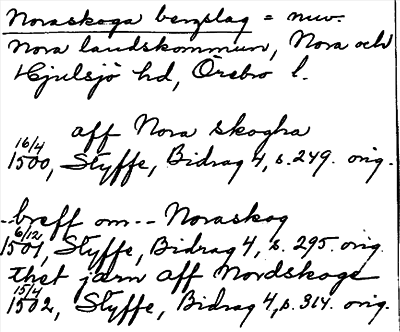 Noraskoga bergslag = nuv.
Nora landskommun, Nora och
Hjulsjö hd, Örebro l.
aff Nora skogha
16/4
1500, Styffe, Bidrag 4, s. 249. orig.
-breff om-- Noraskog
6/12
1501, Styffe, Bidrag 4, s. 295. orig.
thet jarn aff Nordskoge
15/4
1502, Styffe, Bidrag 4, s. 314. orig.